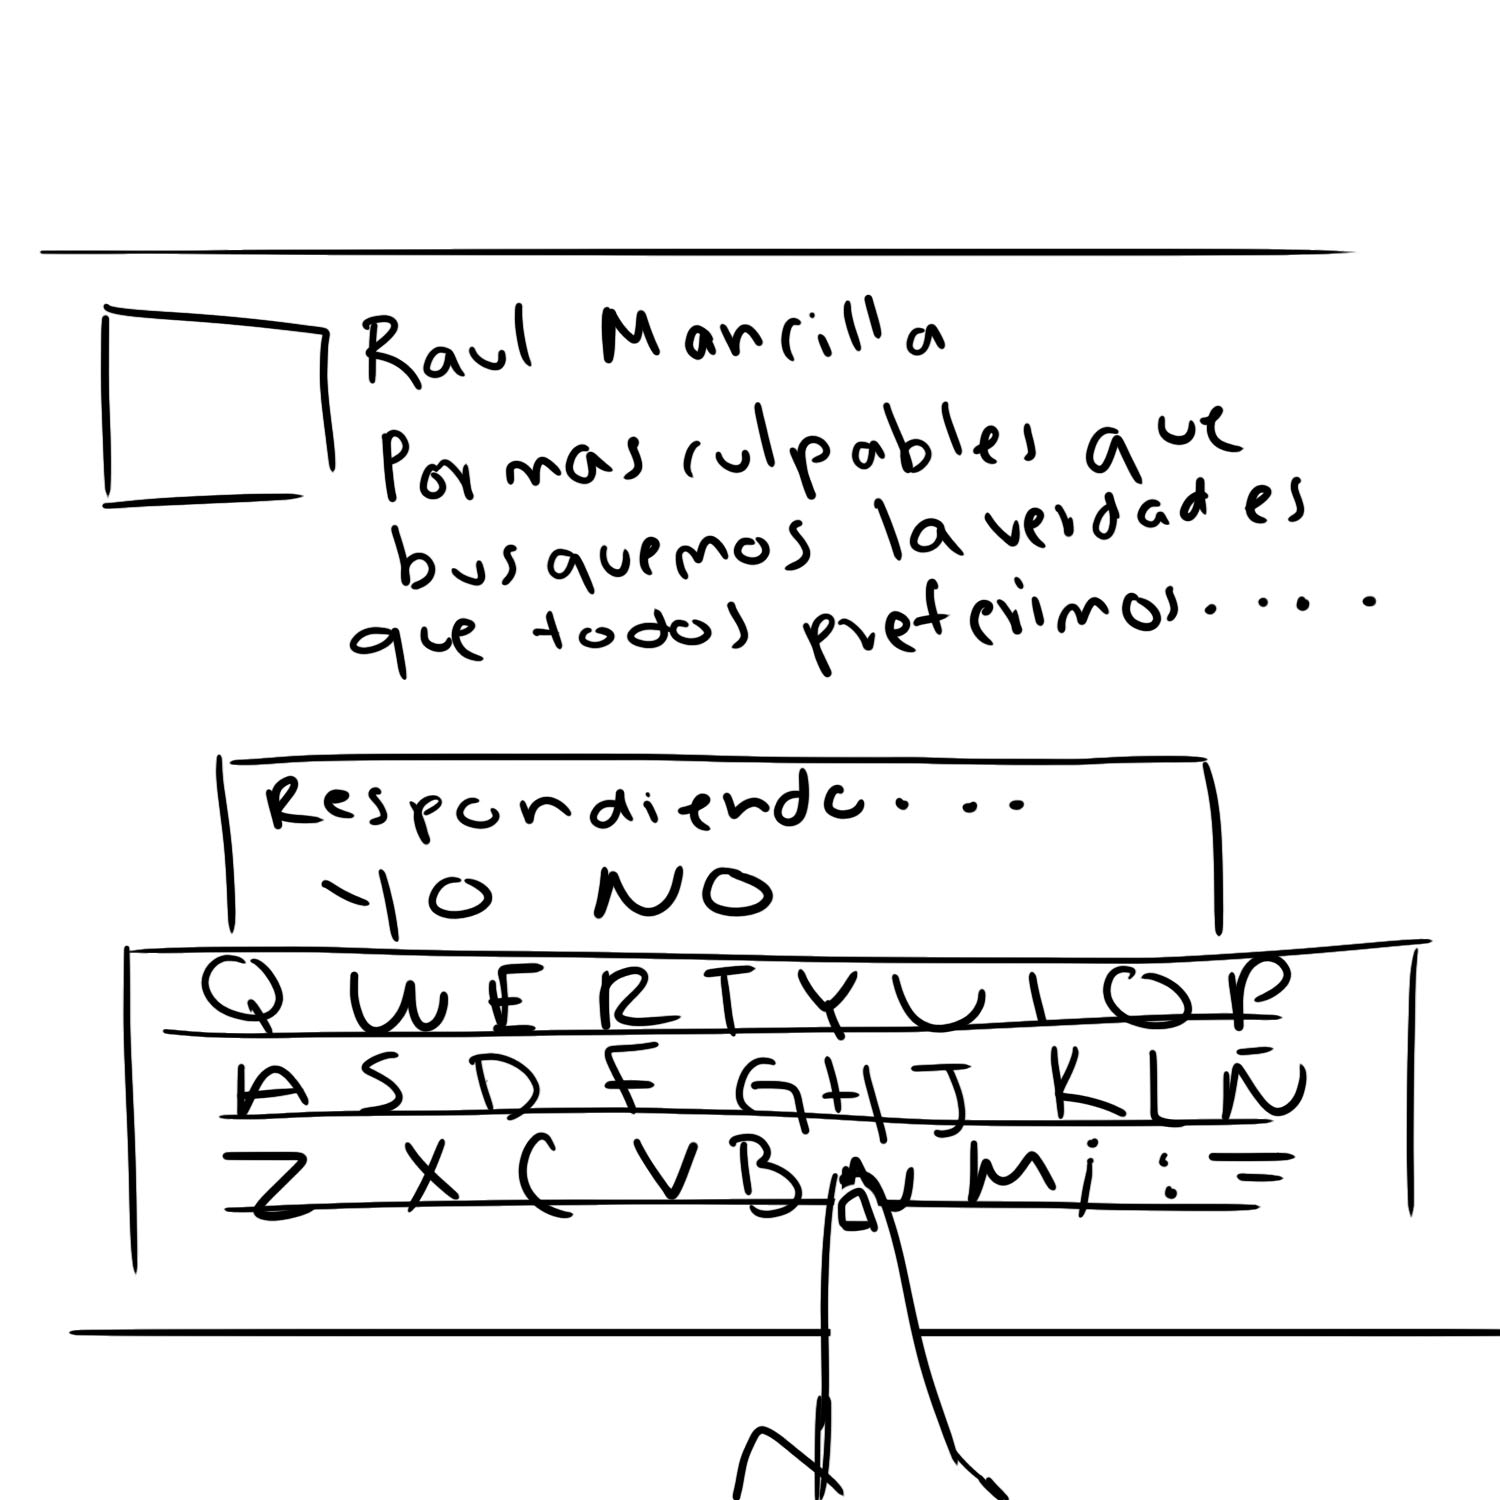 Raul Mancilla
Por mas culpables que
busquemos la verdad es
que todos preferimos....
Respondiendo...
YO NO
Q W E R T Y U I O P
A S D F G H J K L Ñ
Z X C V B M